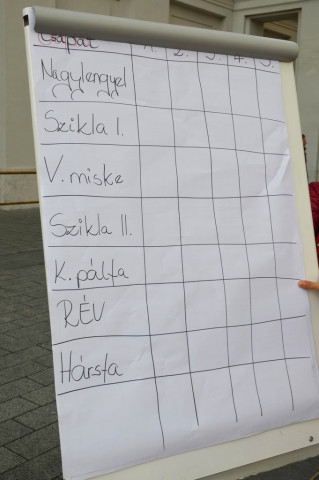 Csapat 1. 2. 3. 4. 5.
Nagylengyel
Szikla I.
V. miske
Szikla II.
K. pálfa
RÉV
Hársfa